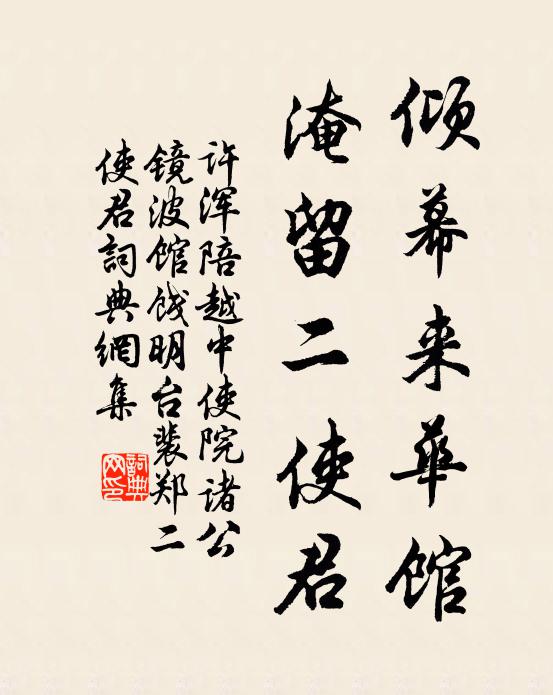 倾幕来華馆
淹留二使君
许浑陪越中使院诸公
镜波馆饯明台裴郑二
使君詞典網集
詞典
网印